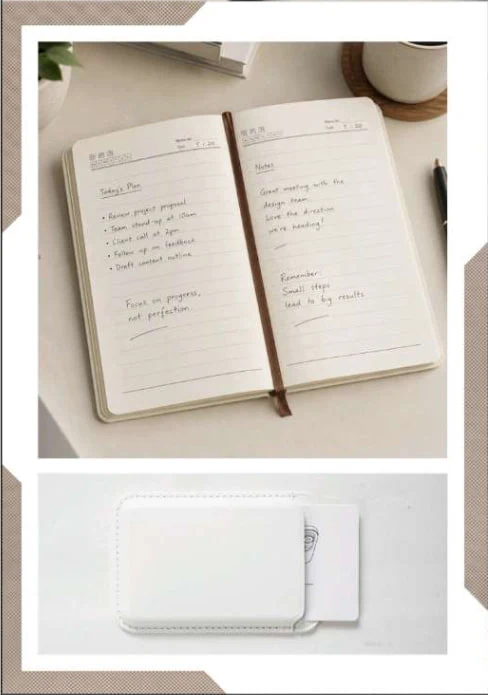 Today's Plan
• Review project proposal
• Team stand-up at 10am
• Client call at 2pm
• Follow up on feedback
• Draft content outline
Focus on progress,
not perfection
Notes
Great meeting with the
design team.
Love the direction
we're heading!
Remember:
Small steps
lead to big results